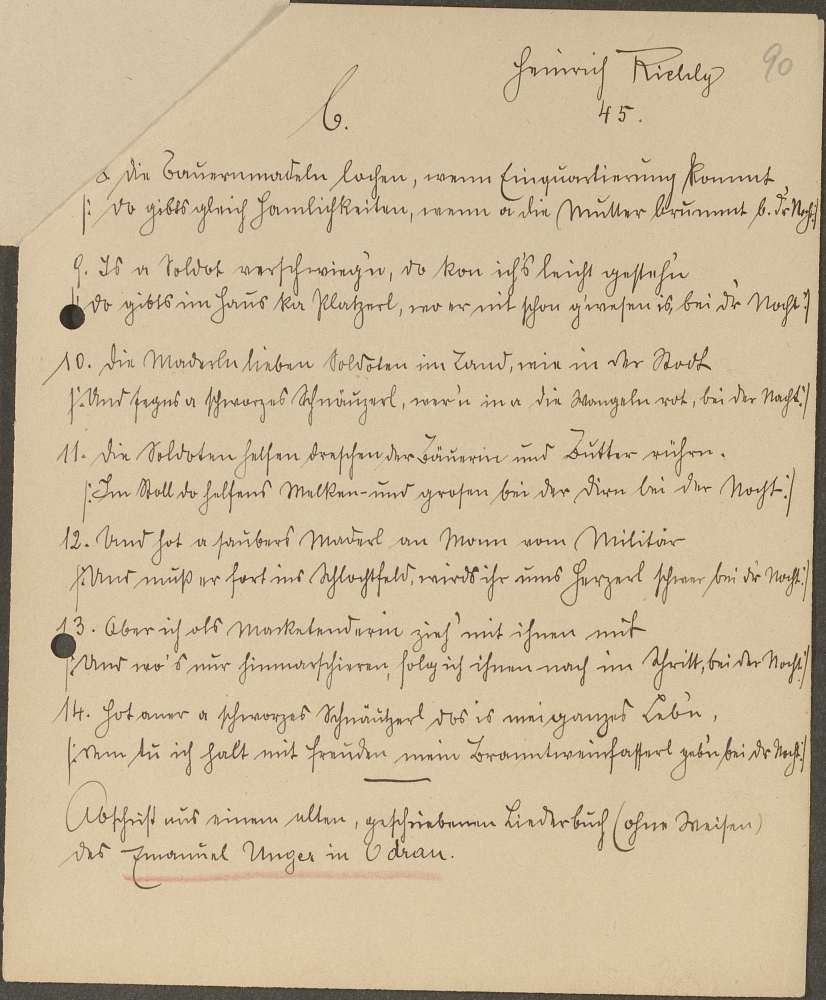 Heinrich Richly 90
45.
6.
8. Die Bauernmadeln lochen, wenn Einquartierung kommt
|: Do gibts gleich Hamlichkeiten, wenn a die Mutter brummt b. dr Nocht :|
9. Is a Soldot verschwieg'n, do kon ich's leicht gesteh'n
|: Do gibts im Haus ka Platzerl, wo er nit schon g'wesen is, bei d'r Nocht :|
10. Die Maderln lieben Soldoten im Land, wie in der Stodt
|: Und segns a schworzes Schnäuzerl, wer'n in a die Wangeln rot, bei der Nacht :|
11. Die Soldoten helfen dreschen der Bäuerin und Butter rührn.
|: Im Stoll do helfens Melken und grosen bei der Dirn bei der Nocht :|
12. Und hot a saubers Maderl an Monn vom Militär
|: Und muß er fort ins Schlochtfeld, wirds ihr ums Herzerl schwer bei d'r Nocht :|
13. Aber ich ols Marketenderin zieh' mit ihnen mit
|: Und wo's nur hinmarschieren, folg ich ihnen noch im Schritt, bei der Nocht :|
14. Hot aner a schworzes Schnäutzerl dos is mei ganzes Leb'n,
|: Dem tu ich halt mit Freuden mein Branntweinfasserl geb'n bei dr Nocht :|
Abschrift aus einem alten, geschriebenen Liederbuch (ohne Weisen)
des Emanuel Unger in Odrau.